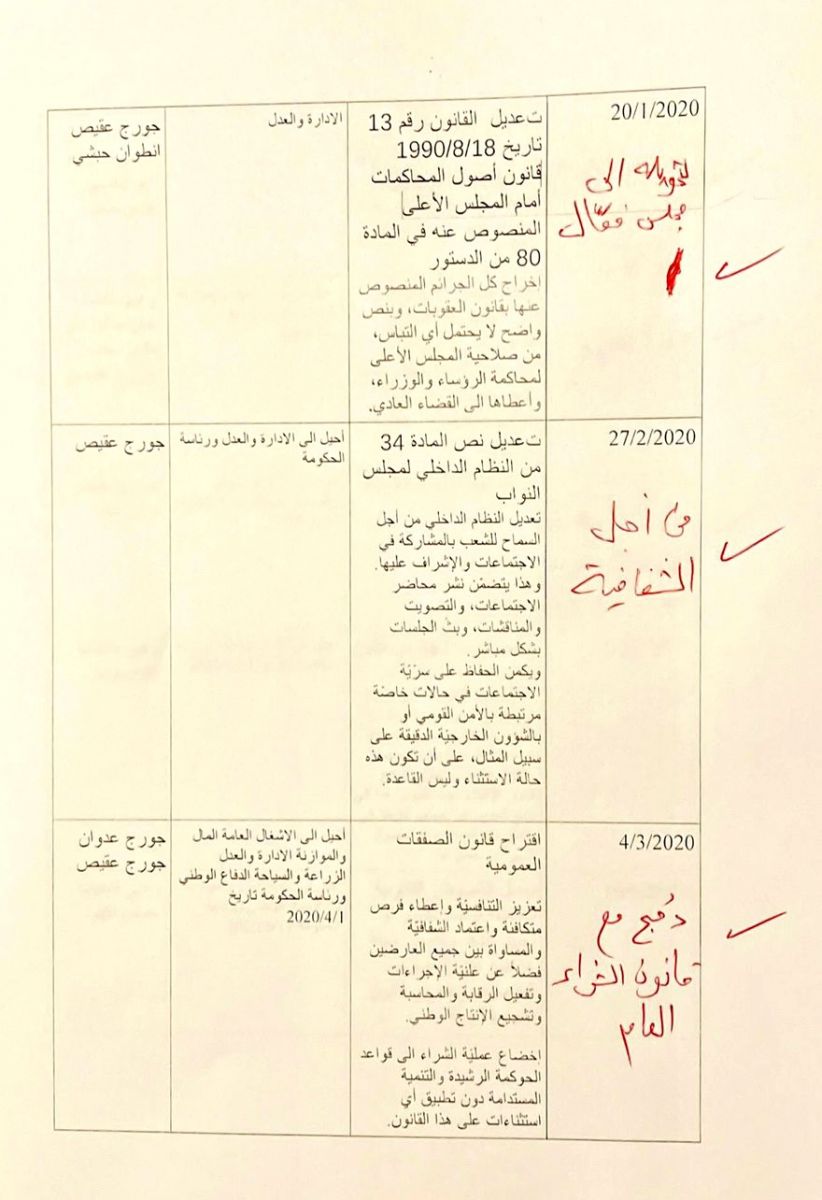 20/1/2020
لتحويله الى
مجلس فعّال
تعديل القانون رقم 13
تاريخ 1990/8/18
قانون أصول المحاكمات
أمام المجلس الأعلى
المنصوص عنه في المادة
80 من الدستور
إخراج كل الجرائم المنصوص
عنها بقانون العقوبات، وبنص
واضح لا يحتمل أي التباس،
من صلاحية المجلس الأعلى
لمحاكمة الرؤساء والوزراء،
وأعطاها الى القضاء العادي.
الادارة والعدل
جورج عقيص
انطوان حبشي
27/2/2020
من أجل
الشفافية
تعديل نص المادة 34
من النظام الداخلي لمجلس
النواب
تعديل النظام الداخلي من أجل
السماح للشعب بالمشاركة في
الاجتماعات والإشراف عليها.
وهذا يتضمّن نشر محاضر
الاجتماعات، والتصويت
والمناقشات، وبثّ الجلسات
بشكل مباشر.
ويكمن الحفاظ على سرّيّة
الاجتماعات في حالات خاصّة
مرتبطة بالأمن القومي أو
بالشؤون الخارجيّة الدقيقة على
سبيل المثال، على أن تكون هذه
حالة الاستثناء وليس القاعدة.
أحيل الى الادارة والعدل ورئاسة
الحكومة
جورج عقيص
4/3/2020
دُمج مع
قانون الشراء
العام
اقتراح قانون الصفقات
العمومية
تعزيز التنافسيّة وإعطاء فرص
متكافئة واعتماد الشفافيّة
والمساواة بين جميع العارضين
فضلاً عن علنيّة الإجراءات
وتفعيل الرقابة والمحاسبة
وتشجيع الإنتاج الوطني.
اخضاع عمليّة الشراء الى قواعد
الحوكمة الرشيدة والتنمية
المستدامة دون تطبيق أي
استثناءات على هذا القانون.
أحيل الى الاشغال العامة المال
والموازنة الادارة والعدل
الزراعة والسياحة الدفاع الوطني
ورئاسة الحكومة تاريخ
2020/4/1
جورج عدوان
جورج عقيص